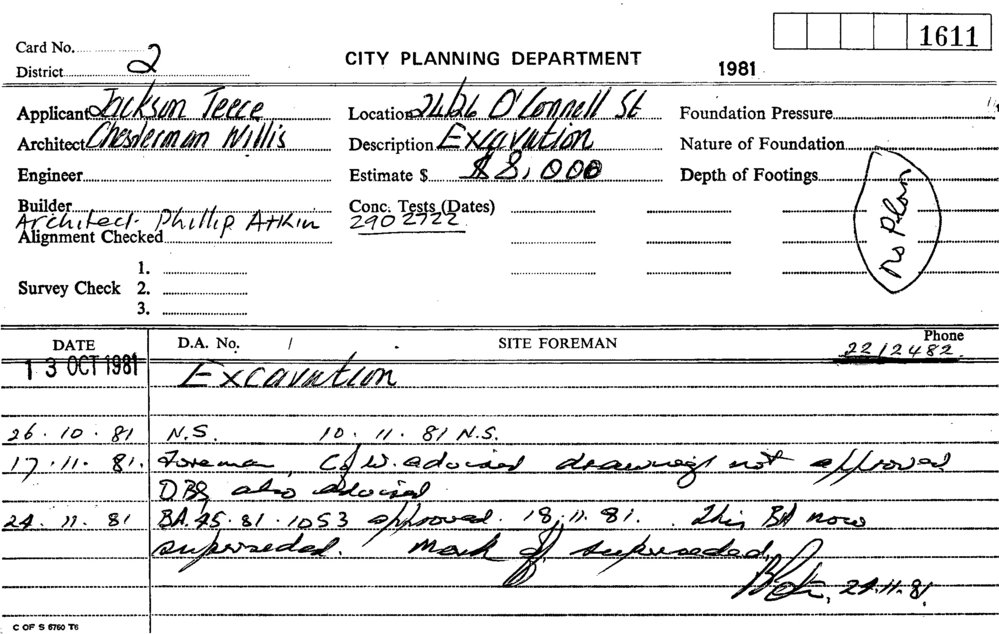 1611
Card No. 2
District
CITY PLANNING DEPARTMENT
1981
Applicant Jackson Teece Location 24/26 O'Connell St Foundation Pressure
Architect Chesterman Willis Description Excavation Nature of Foundation
Engineer Estimate $ $8,000 Depth of Footings
Builder Conc. Tests (Dates)
Architect- Phillip Atkin 2902722
Alignment Checked
No Plans
1.
Survey Check 2.
3.
DATE D.A. No. / SITE FOREMAN Phone
2212482.
13 OCT 1981 Excavation
26.10.81 N.S. 10.11.81 N.S.
17.11.81. Foreman, C of W. advised drawings not approved
DBS also advised
24.11.81 BA.45.81.1053 approved. 18.11.81. This BA now
superseded. Mark off superseded.
24.11.81.
C OF S 6760 T6